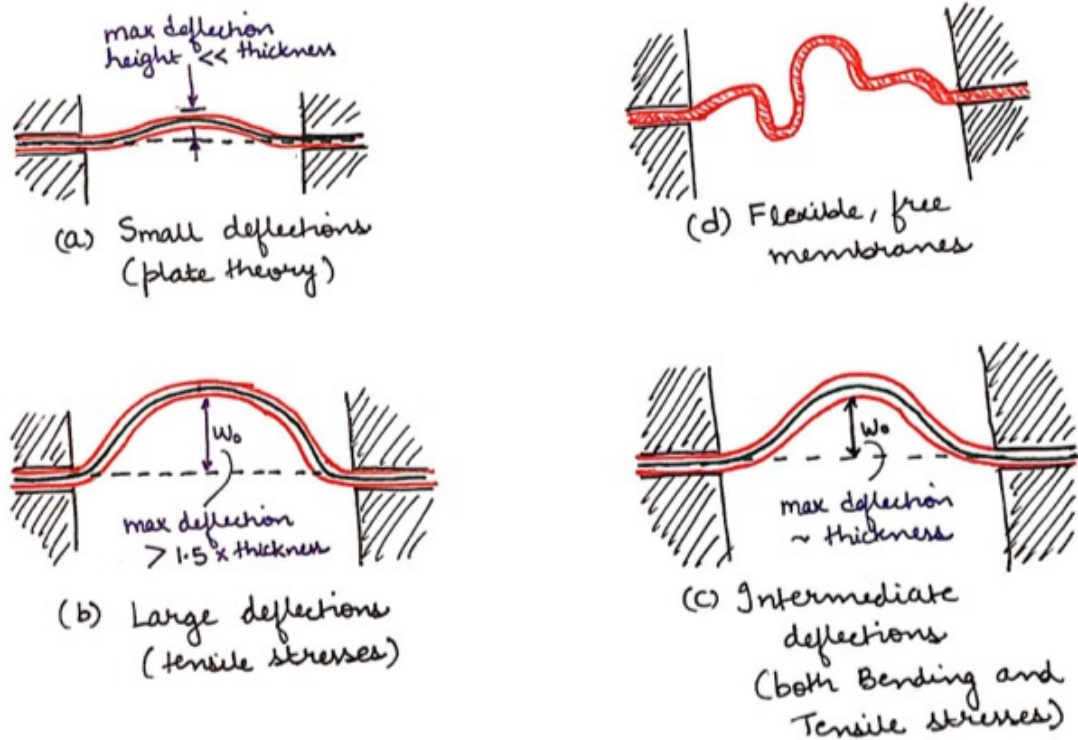 max deflection
height << thickness
(a) Small deflections
(plate theory)
(d) Flexible, free
membranes
W₀
max deflection
> 1.5 x thickness
(b) Large deflections
(tensile stresses)
W₀
max deflection
~ thickness
(c) Intermediate
deflections
(both Bending and
Tensile stresses)